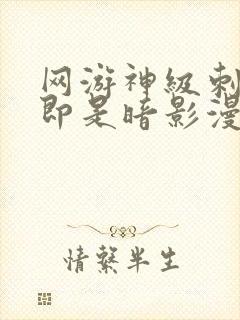 网游神级刺
即是暗影漫
情繫半生